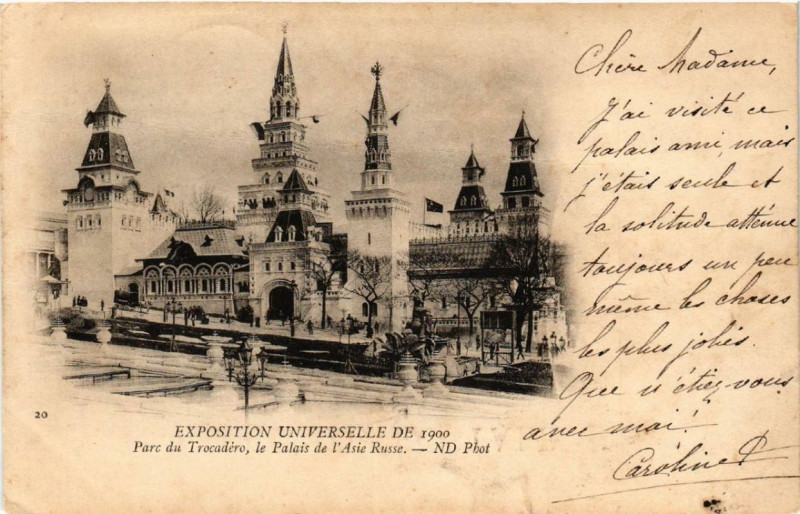 Chère Madame,
J'ai visité ce
palais ami, mais
j'étais seule et
la solitude atténue
toujours un peu
même les choses
les plus jolies.
Que n'étiez-vous
avec moi!
Caroline
20
EXPOSITION UNIVERSELLE DE 1900
Parc du Trocadéro, le Palais de l'Asie Russe. — ND Phot